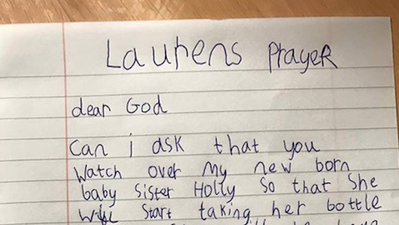 Laurens Prayer
dear God
Can i ask that you
Watch over My new born
baby sister Holly So that She
Start taking her bottle